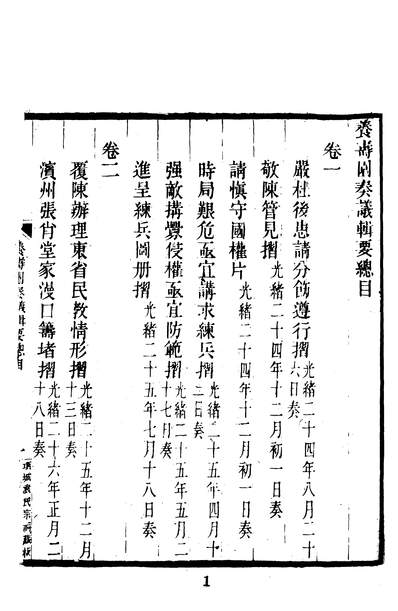 養壽園奏議輯要總目
卷一
嚴杜後患請分飭遵行摺光緒二十四年八月二十六日奏
敬陳管見摺光緒二十四年十二月初一日奏
請愼守國權片光緒二十四年十二月初一日奏
時局艱危亟宜講求練兵摺光緒二十五年四月十三日奏
强敵搆釁侵權亟宜防範摺光緒二十五年五月二十七日奏
進呈練兵圖册摺光緒二十五年七月十八日奏
卷二
覆陳辦理東省民敎情形摺光緒二十五年十二月十三日奏
濱州張肖堂家漫口籌堵摺光緒二十六年正月二十八日奏
養壽園奏議輯要總目
一
項城袁氏宗祠藏板
1